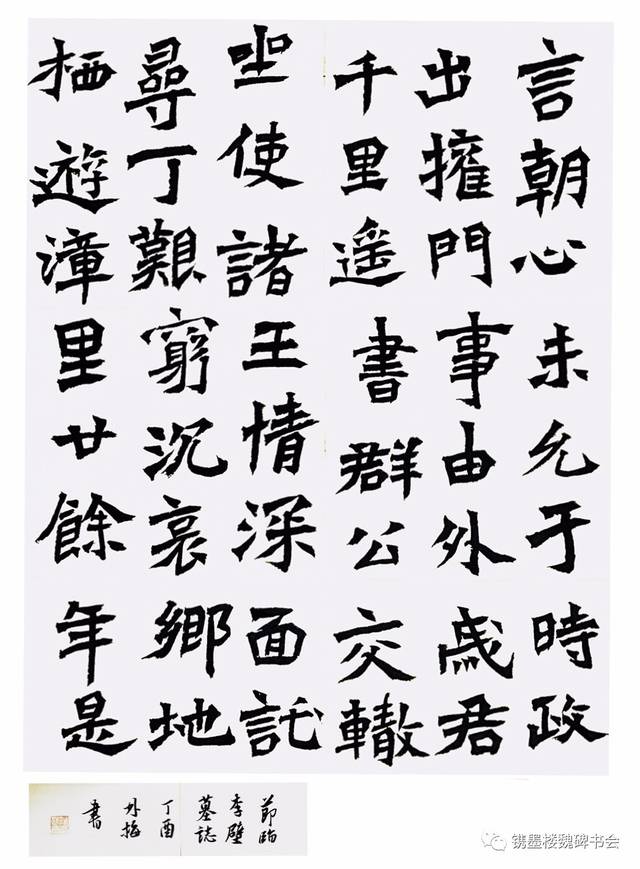 言朝心未允于時政
出擁門事由外戚君
千里遥書群公交轍
坐使諸王情深面託
尋丁艱窮沉哀鄉地
栖遊漳里廿餘年是
節臨
李壁
墓誌
丁酉
書
镌墨楼魏碑书会